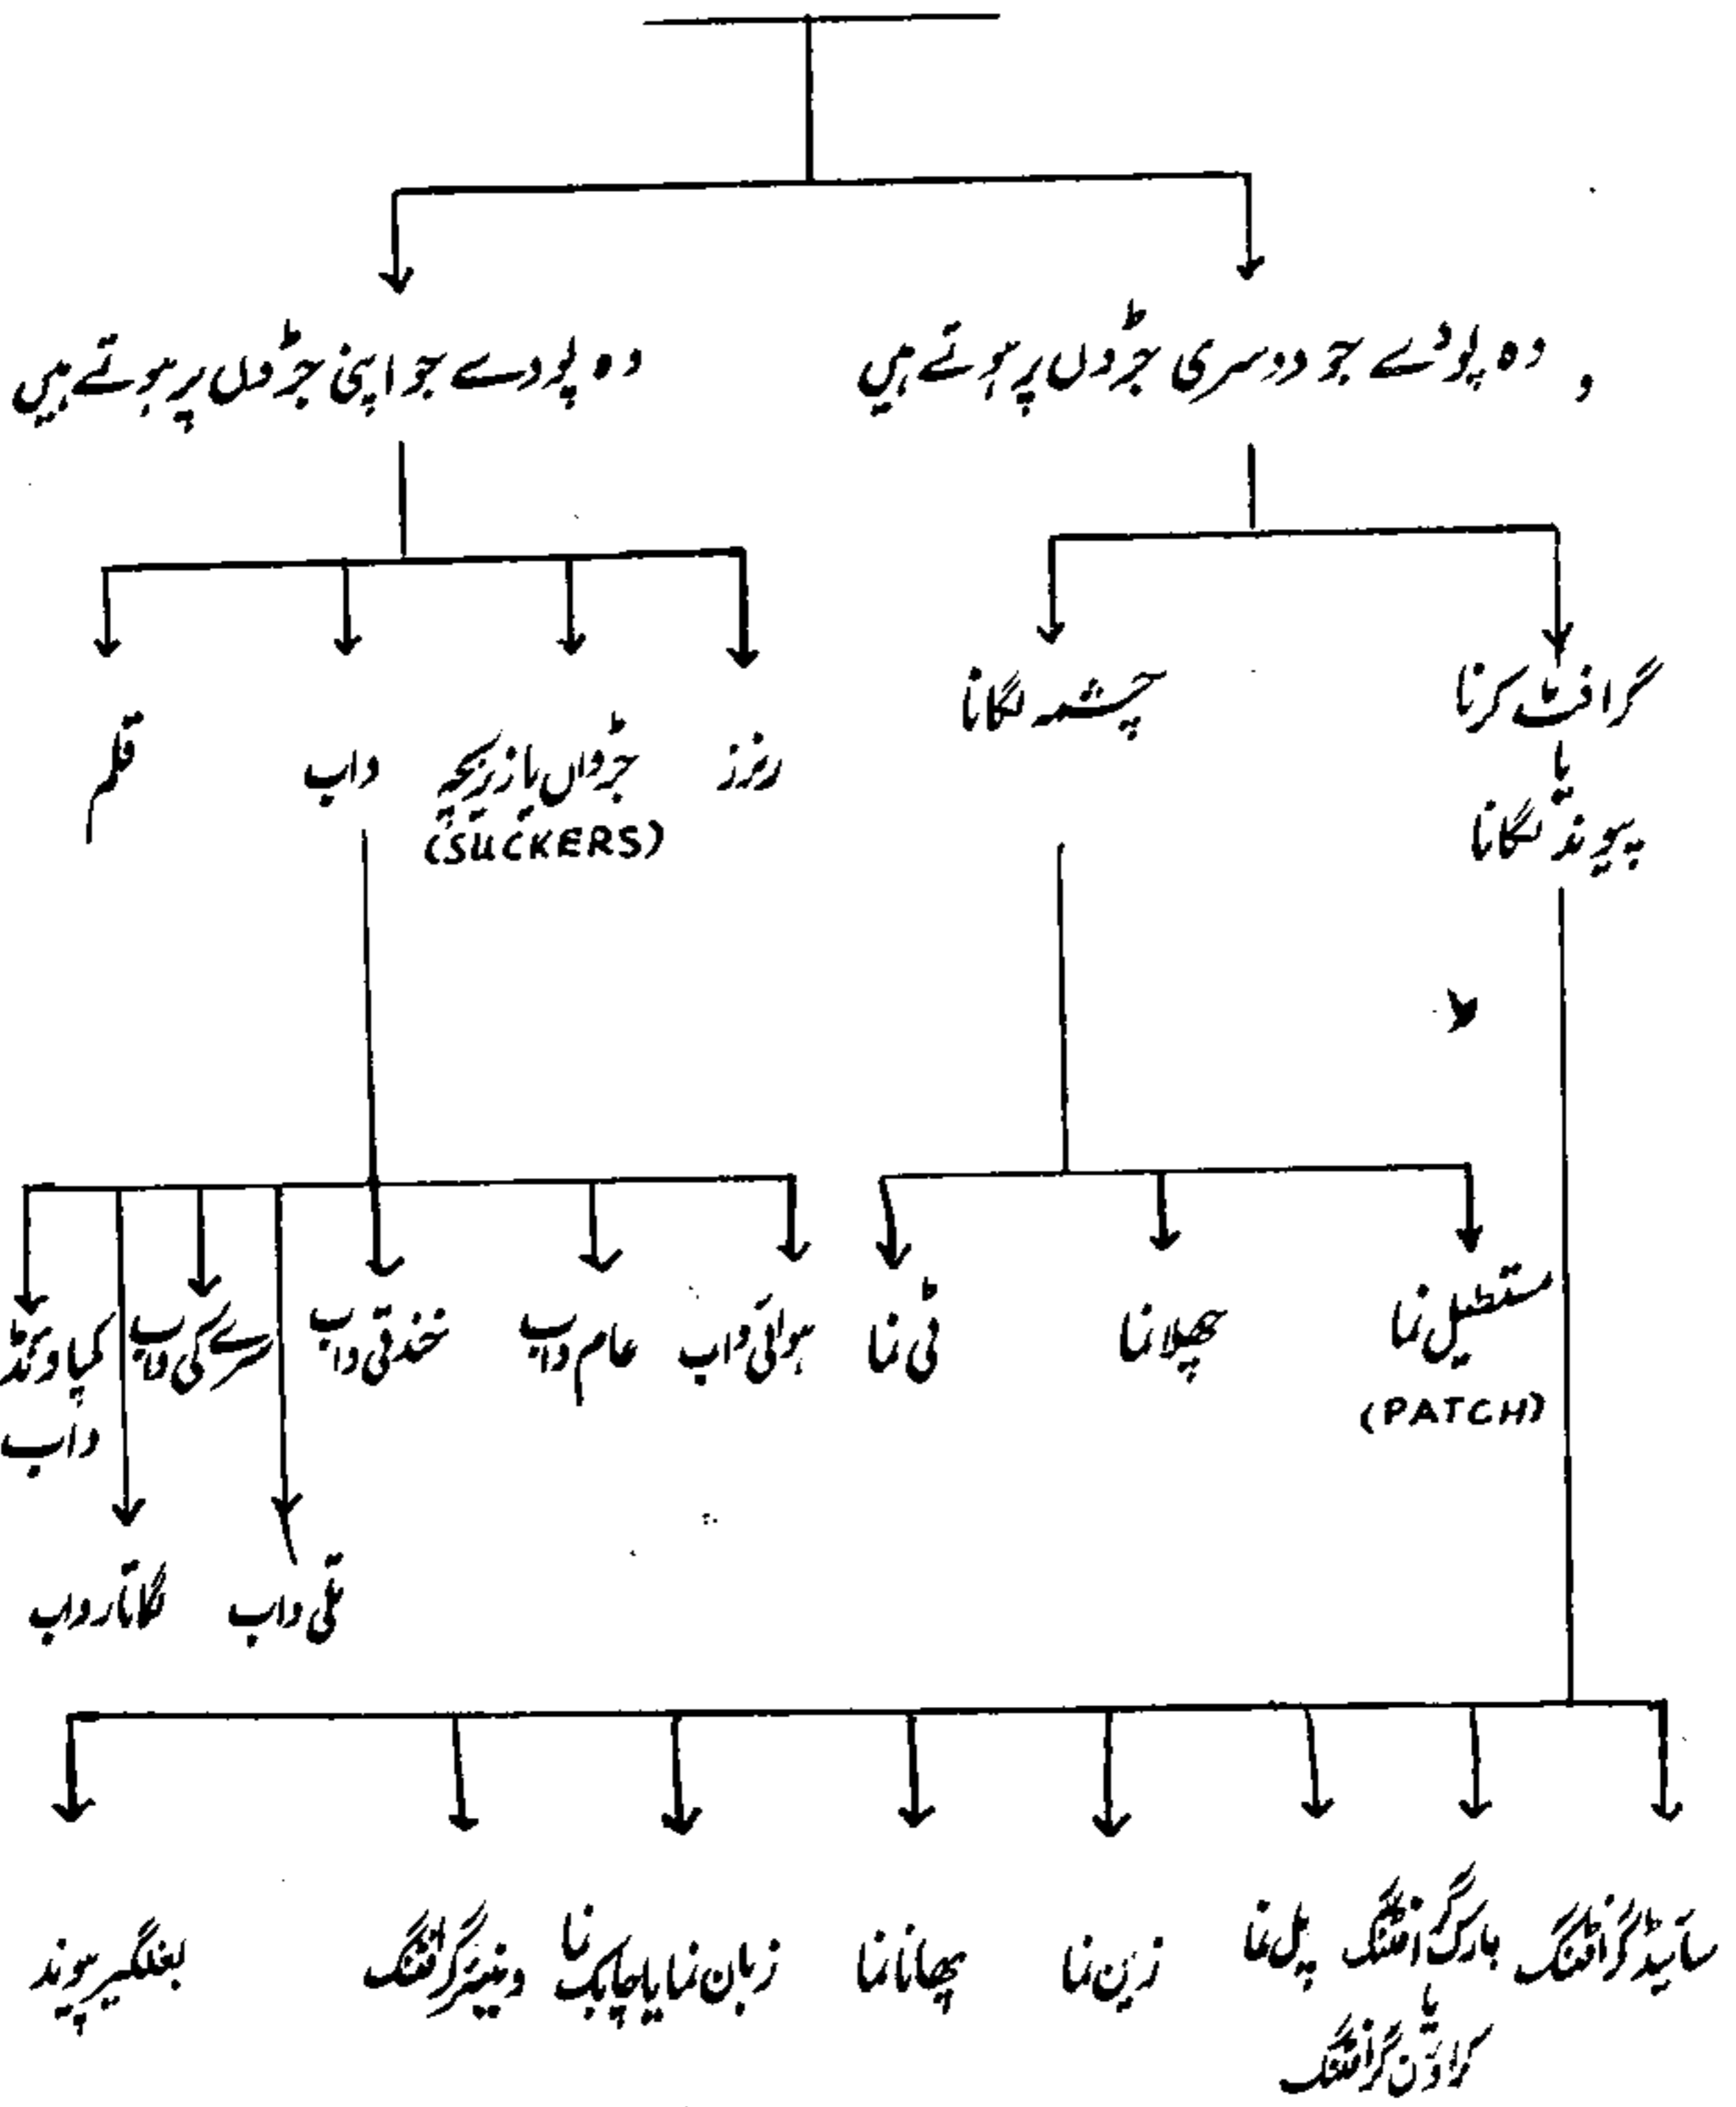 وہ پودے جو دوسری جڑوں پر ہوتے ہیں
وہ پودے جو اپنی جڑوں پر ہوتے ہیں
گرافٹ کرنا
یا
پیوند لگانا
چشمہ لگانا
رنرز
جڑواں یا زیربچہ
(SUCKERS)
داب
قلم
مستطیل نما
(PATCH)
چھلا نما
ٹی نما
ہوائی داب
عام داب
خندقی داب
سرے کی داب
کمپاونڈ
داب
تلی داب
لگاتار داب
سائیڈ گرافٹنگ
بارک گرافٹنگ
یا
کراؤن گرافٹنگ
پل نما
زین نما
پھانا نما
زبان نما یا چابک نما
وینیر گرافٹنگ
بغلگیر پیوند